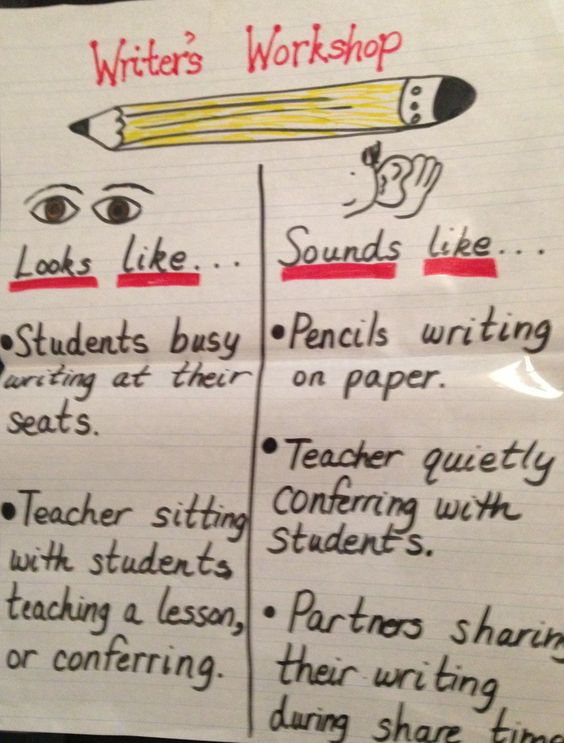 Writer's Workshop
Looks like...
• Students busy
writing at their
seats.
• Teacher sitting
with students
teaching a lesson,
or conferring.
Sounds like...
• Pencils writing
on paper.
• Teacher quietly
conferring with
students.
• Partners sharin
their writing
during share time